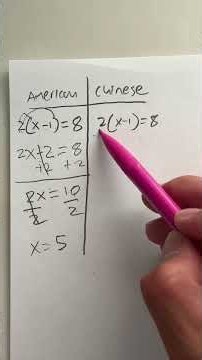 American Chinese
2(x-1)=8 2(x-1)=8
2x+2=8
+2 +2
2x=10
2 2
x=5